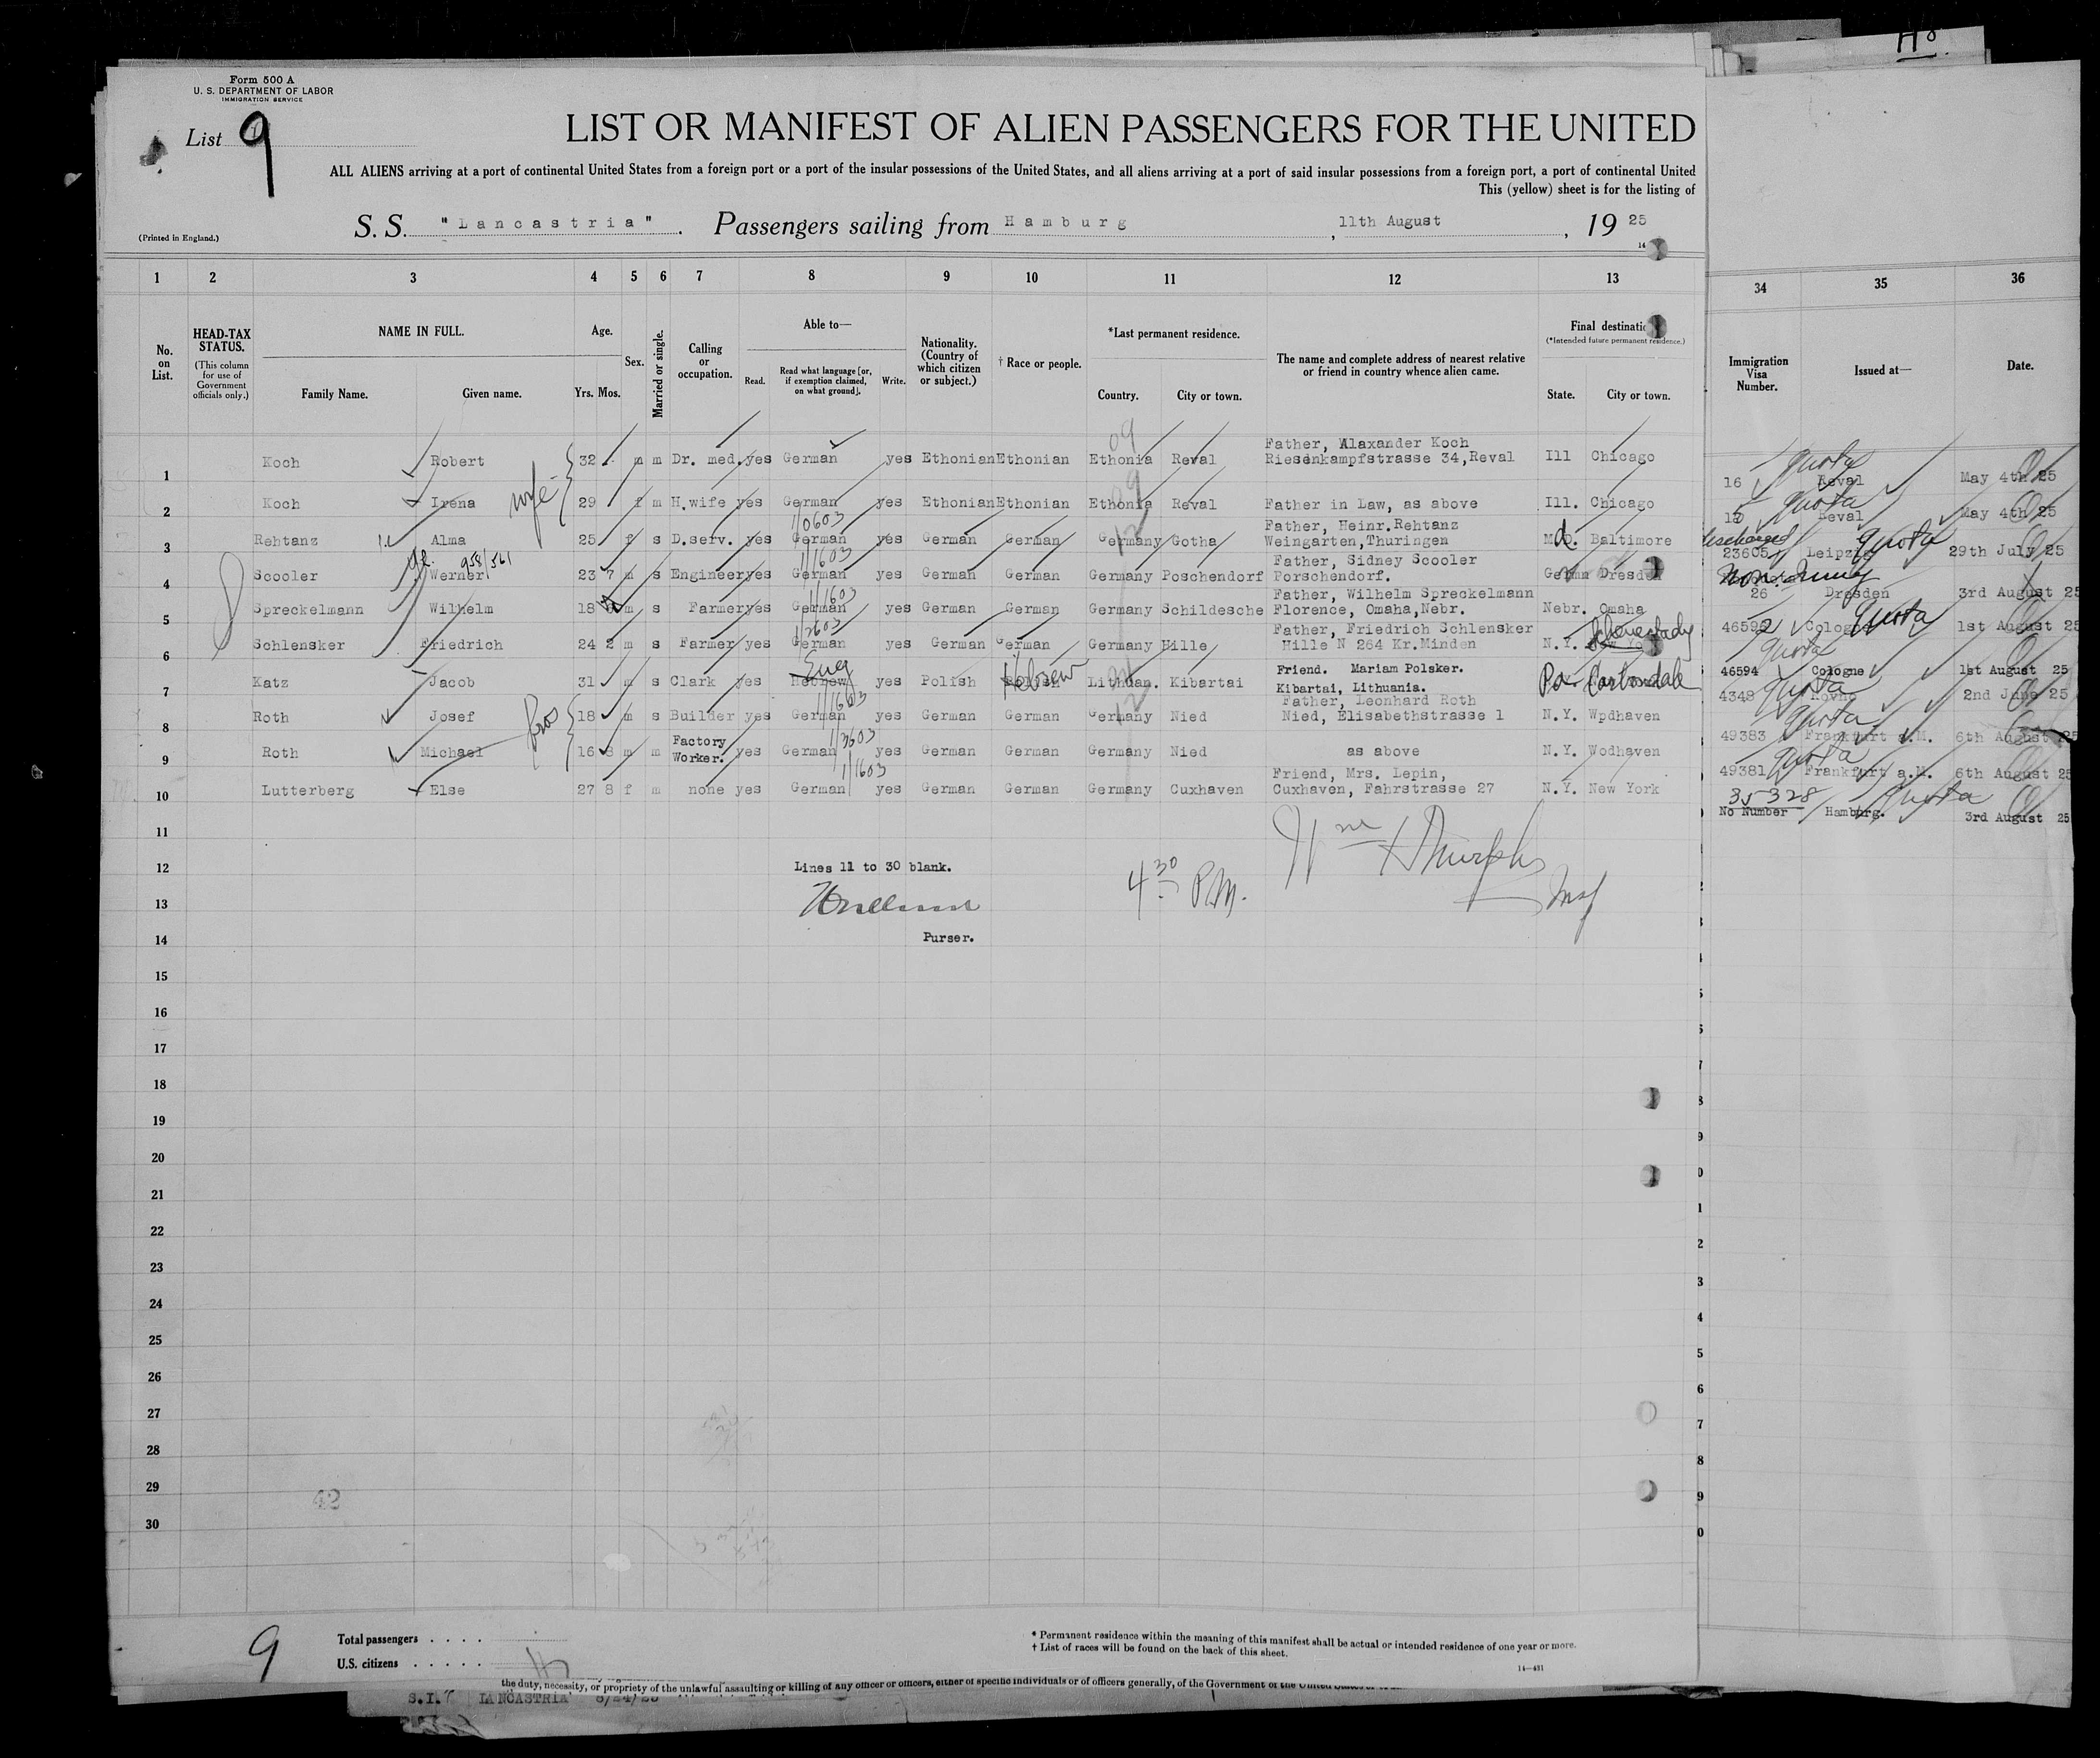 H8.
Form 500 A
U. S. DEPARTMENT OF LABOR
IMMIGRATION SERVICE
List 9
LIST OR MANIFEST OF ALIEN PASSENGERS FOR THE UNITED
ALL ALIENS arriving at a port of continental United States from a foreign port or a port of the insular possessions of the United States, and all aliens arriving at a port of said insular possessions from a foreign port, a port of continental United
This (yellow) sheet is for the listing of
(Printed in England.)
S. S. "Lancastria". Passengers sailing from Hamburg, 11th August, 19 25
14
1 2 3 4 5 6 7 8 9 10 11 12 13 34 35 36
No. on List.
HEAD-TAX STATUS.
(This column for use of Government officials only.)
NAME IN FULL.
Family Name. Given name.
Age.
Yrs. Mos.
Sex.
Married or single.
Calling or occupation.
Able to—
Read. Read what language [or, if exemption claimed, on what ground]. Write.
Nationality. (Country of which citizen or subject.)
† Race or people.
*Last permanent residence.
Country. City or town.
The name and complete address of nearest relative or friend in country whence alien came.
Final destinatio
(*Intended future permanent residence.)
State. City or town.
Immigration Visa Number.
Issued at—
Date.
1 Koch Robert 32 m m Dr. med. yes German yes Ethonian Ethonian Ethonia Reval Father, Alaxander Koch Riesenkampfstrasse 34,Reval Ill Chicago 16 Reval May 4th 25
09
quota
wife
2 Koch Irena 29 f m H.wife yes German yes Ethonian Ethonian Ethonia Reval Father in Law, as above Ill. Chicago Reval May 4th 25
09
quota
3 Rehtanz Alma 25 f s D.serv. yes German yes German German Germany Gotha Father, Heinr.Rehtanz Weingarten,Thuringen Md. Baltimore 23605 Leipzig 29th July 25
1/0603
12
discharged
quota
4 Scooler Werner 23 7 m s Engineer yes German yes German German Germany Poschendorf Father, Sidney Scooler Porschendorf. Germn Dresden 26 Dresden 3rd August 25
958/561
1/1603
5 Spreckelmann Wilhelm 18 m s Farmer yes German yes German German Germany Schildesche Father, Wilhelm Spreckelmann Florence, Omaha,Nebr. Nebr. Omaha 46592 Cologne 1st August 25
1/1603
quota
6 Schlensker Friedrich 24 2 m s Farmer yes German yes German German Germany Hille Father, Friedrich Schlensker Hille N 264 Kr.Minden N.Y. Schenectady 46594 Cologne 1st August 25
1/2603
quota
7 Katz Jacob 31 m s Clark yes Hebrew yes Polish Hebrew Lithuan. Kibartai Friend. Mariam Polsker. Kibartai, Lithuania. Pa. Carbondale 4348 Kovno 2nd June 25
Eng
quota
8 Roth Josef 18 m s Builder yes German yes German German Germany Nied Father, Leonhard Roth Nied, Elisabethstrasse 1 N.Y. Wpdhaven 49383 Frankfurt a.M. 6th August 25
1/1603
12
quota
bros
9 Roth Michael 16 8 m m Factory Worker. yes German yes German German Germany Nied as above N.Y. Wodhaven 49381 Frankfurt a.M. 6th August 25
1/3603
quota
10 Lutterberg Else 27 8 f m none yes German yes German German Germany Cuxhaven Friend, Mrs. Lepin, Cuxhaven, Fahrstrasse 27 N.Y. New York No Number Hamburg. 3rd August 25
1/1603
35328
quota
11
12 Lines 11 to 30 blank.
4 30 P.M.
Wm Murphy
Insp
13
14 Purser.
15
16
17
18
19
20
21
22
23
24
25
26
27
28
29
42
30
9
Total passengers . . . .
U.S. citizens . . . . .
* Permanent residence within the meaning of this manifest shall be actual or intended residence of one year or more.
† List of races will be found on the back of this sheet.
14—431
the duty, necessity, or propriety of the unlawful assaulting or killing of any officer or officers, either of specific individuals or of officers generally, of the Government of the United States
S.I. LANCASTRIA 8/24/25